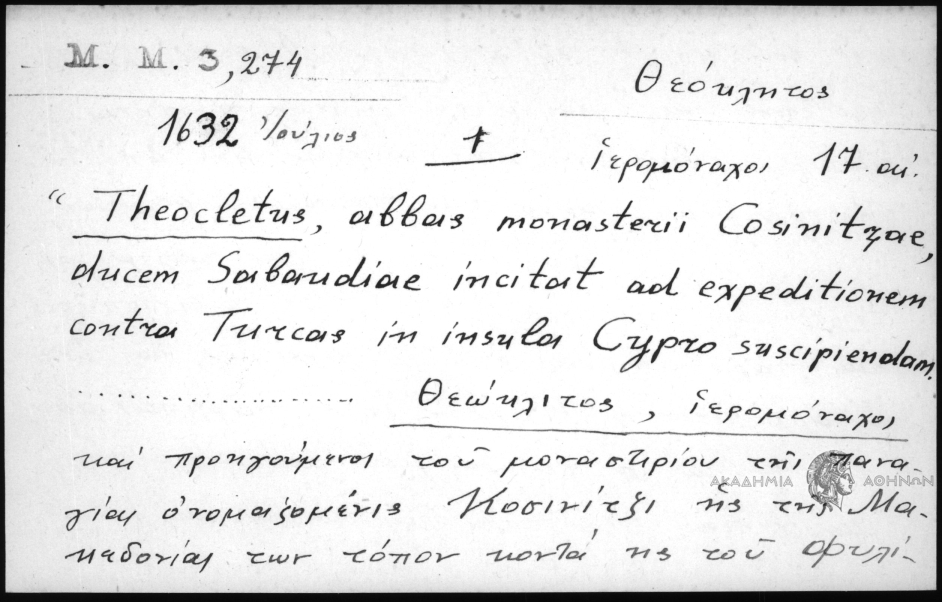 M. M. 3,274
Θεόκλητος
1632 Ἰούλιος
+
ἱερομόναχος 17 αἰ.
“Theocletus, abbas monasterii Cosinitzae,
ducem Sabaudiae incitat ad expeditionem
contra Turcas in insula Cypro suscipiendam.
.................... Θεώκλιτος, ἱερομόναχος
καί προηγούμενος τοῦ μοναστιρίου τῆς πανα-
ΑΚΑΔΗΜΙΑ ΑΘΗΝΩΝ
γίας ὀνομαζομένις Κοσινίτζι ἠς τῆς Μα-
κεδονίας των τόπον κοντά ἠς τοῦ